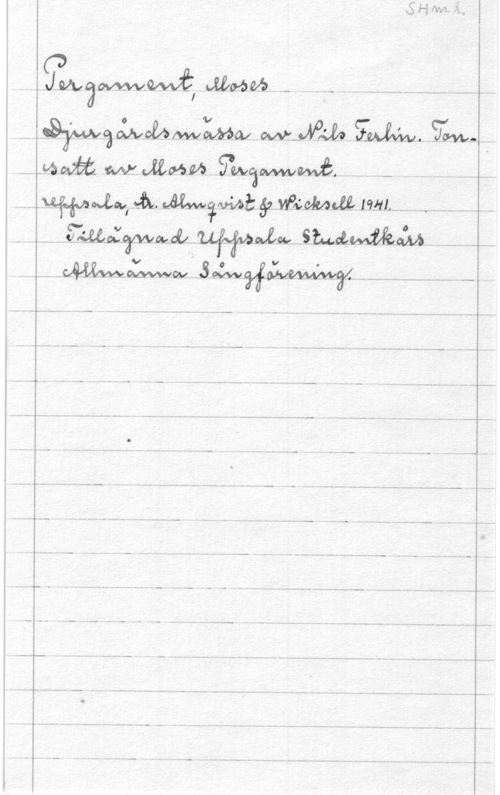 SHm.l.
Pergament, Moses
Djurgårdsmässa av Nils Ferlin. Ton-
satt av Moses Pergament.
Uppsala, tr. Almqvist & Wicksell 1941.
Tillägnad Uppsala Studentkårs
Allmänna Sångförening.